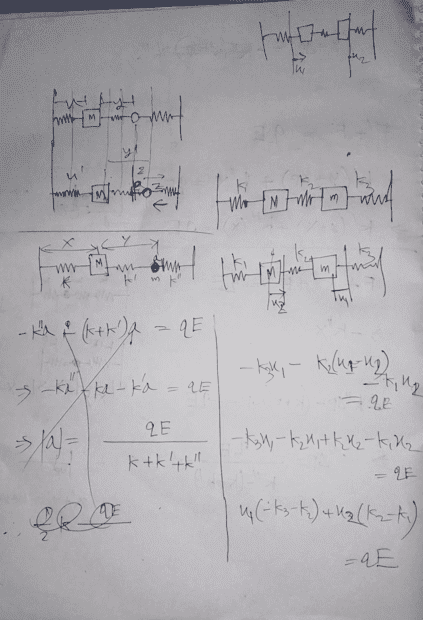 u u2
M
K1 K2 K3
M m
x y
M
K K' m K''
K1 K2 K3
M m
u2 u1
-K''a - (K+K')a = qE
⇒ -Ka'' - Ka - K'a = qE
⇒ |a| = qE / K+K'+K''
-K3u1 - K2(u1-u2)
-K1u2
= qE
-K3u1-K2u1+K2u2-K1u2
= qE
u1(-K3-K2)+u2(K2-K1)
= qE